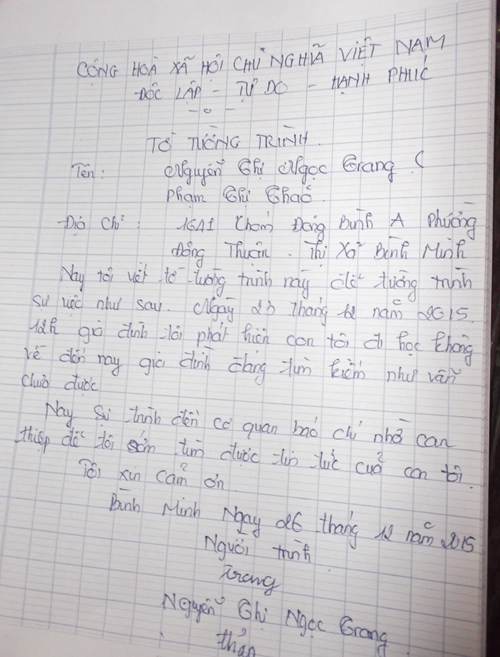 CỘNG HOÀ XÃ HỘI CHỦ NGHĨA VIỆT NAM
ĐỘC LẬP - TỰ DO - HẠNH PHÚC
- o -
TỜ TƯỜNG TRÌNH
Tên: Nguyễn Thị Ngọc Trang (
Phạm Thị Thảo.
Địa Chỉ: 16A1 Khóm Đông Bình A Phường
Đông Thuận. Thị Xã Bình Minh
Nay tôi viết tờ tường trình này để tường trình
sự việc như sau. Ngày 23 tháng 12 năm 2015.
12h gia đình tôi phát hiện con tôi đi học không
về đến nay gia đình đang tìm kiếm như vẫn
chưa được
Nay sự trình đến cơ quan báo chí nhờ can
thiệp để tôi sớm tìm được tin tức của con tôi.
Tôi xin cảm ơn
Bình Minh Ngày 26 tháng 12 năm 2015
Người trình
Trang
Nguyễn Thị Ngọc Trang